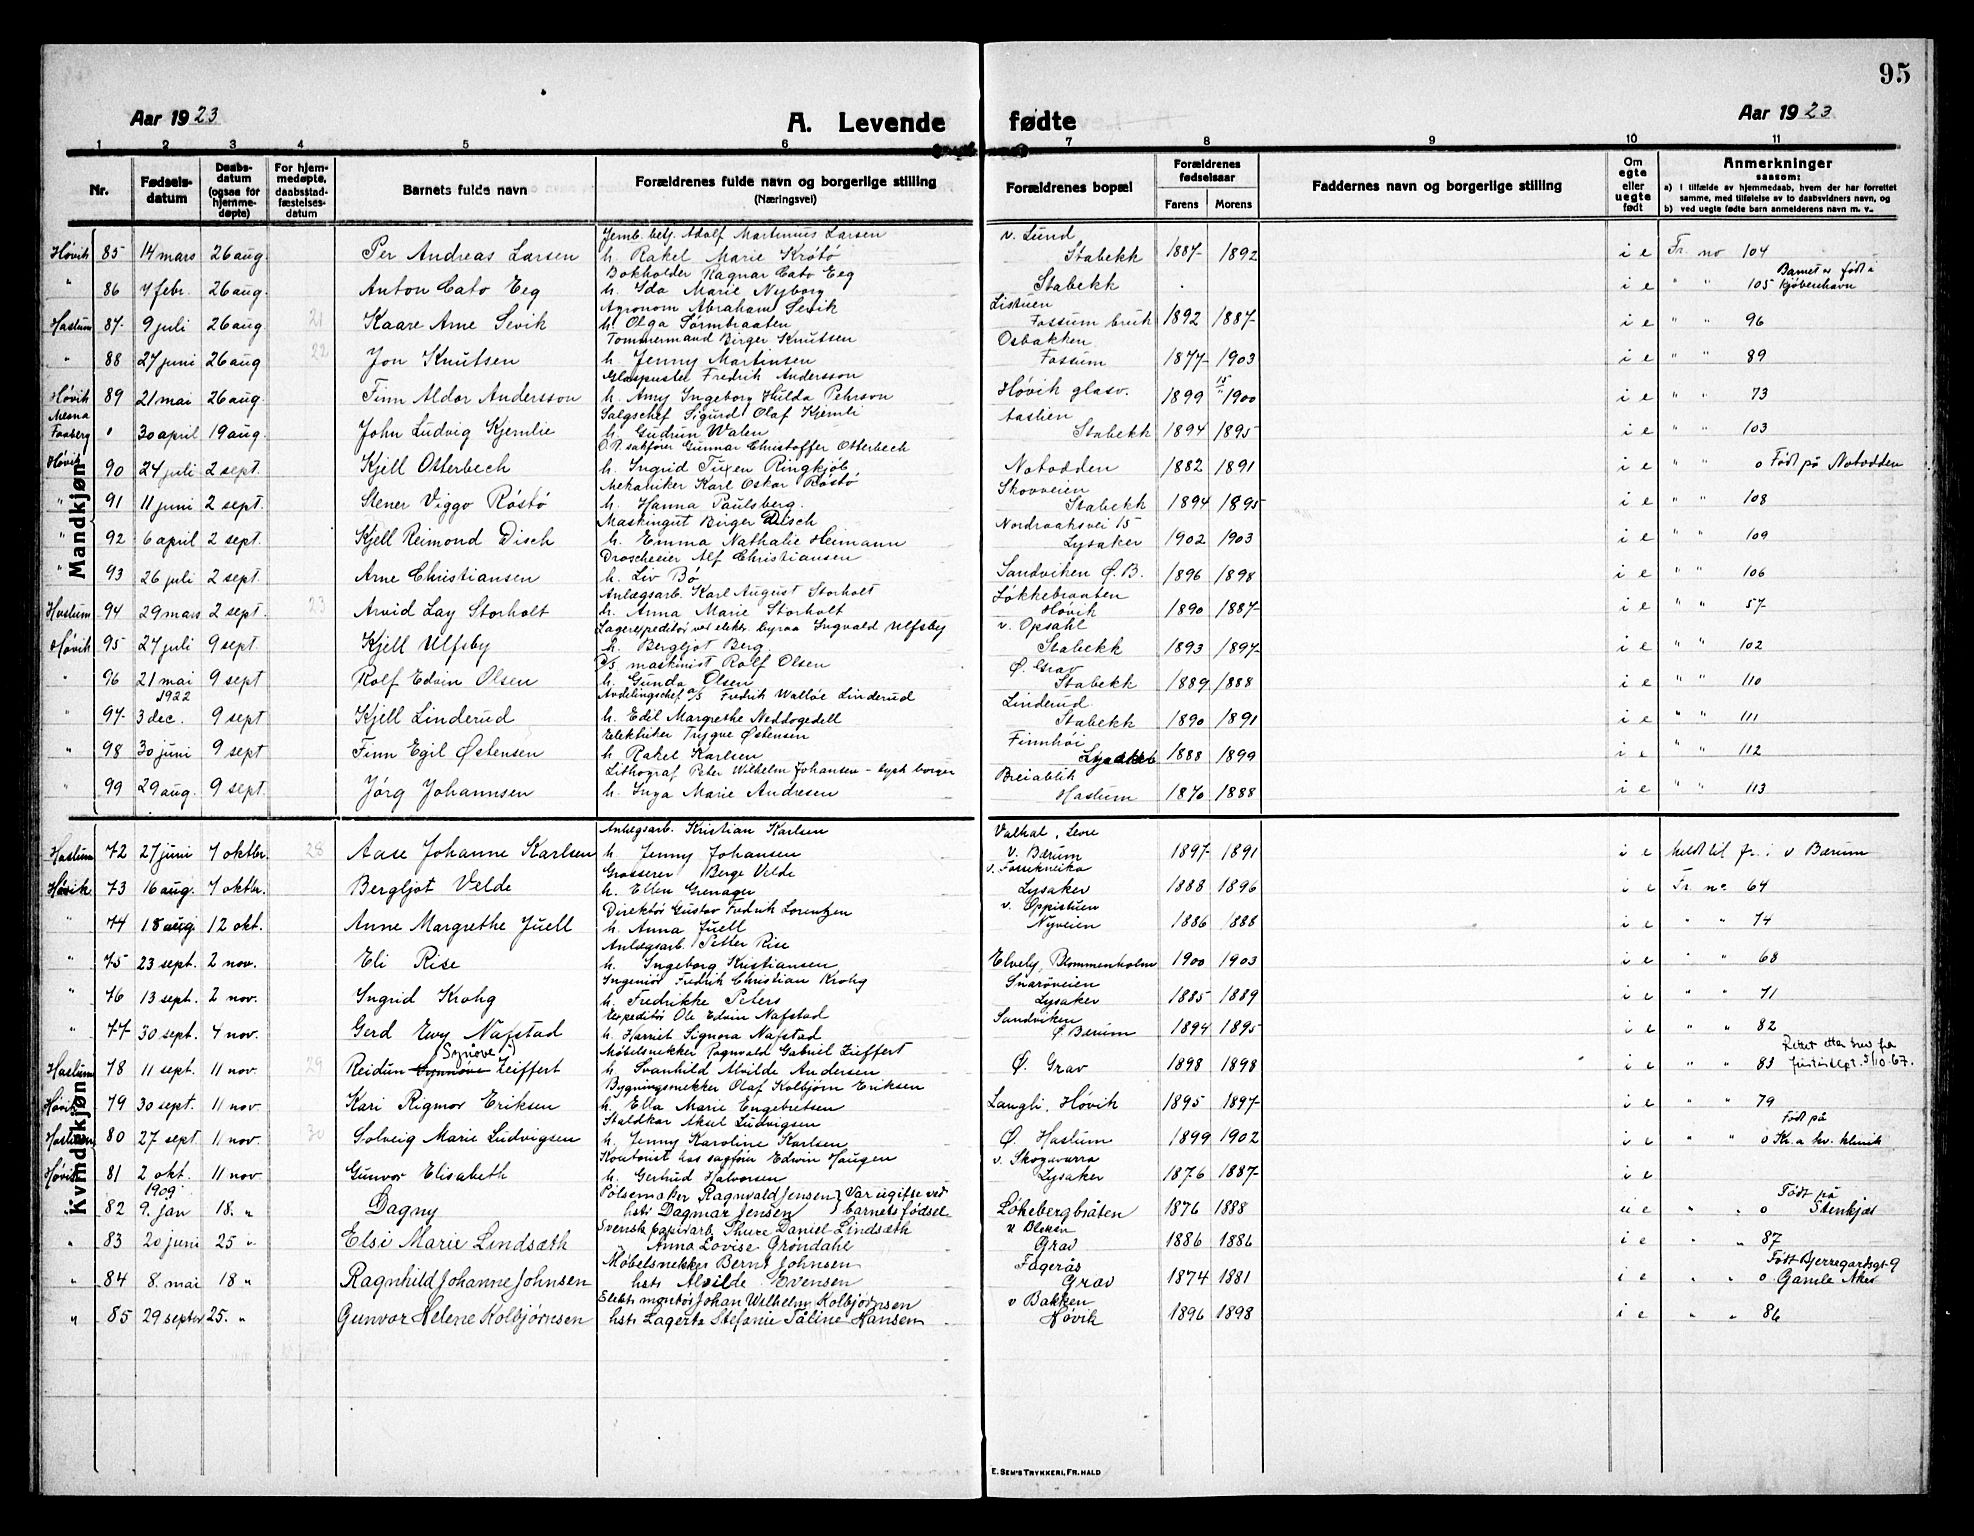 95
Aar 1923 A. Levende fødte Aar 1923
1 2 3 4 5 6 7 8 9 10 11
Nr.
Fødsels-
datum
Daabs-
datum
(ogsaa for
hjemme-
døpte)
For hjem-
medøpte,
daabsstad-
fæstelses-
datum
Barnets fulde navn
Forældrenes fulde navn og borgerlige stilling
(Næringsvei)
Forældrenes bopæl
Forældrenes
fødselsaar
Farens Morens
Faddernes navn og borgerlige stilling
Om
egte
eller
uegte
født
Anmerkninger
saasom:
a) I tilfælde av hjemmedaab, hvem der har forrettet
samme, med tilføielse av to daabsvidners navn, og
b) ved uegte fødte barn anmelderens navn m. v..
Mandkjøn
Jernb. betj. Adolf Martinus Larsen v. Lund
Høvik 85 14 mars 26 aug. Per Andreas Larsen h. Rakel Marie Krötö Stabekk 1887 1892 i e Fr. no 104
Bokholder Ragnar Cato Eeg Barnet er født i
" 86 7 febr. 26 aug. Anton Cato Eeg h. Ida Marie Nyborg Stabekk i e " " 105 Kjøbenhavn
Agronom Abraham Sevik Listuen
Haslum 87 9 juli 26 aug 21 Kaare Arne Sevik h. Olga Sørmbraaten Fossum bruk 1892 1887 i e " " 96
Tømmermand Birger Knutsen Osbakken
" 88 27 juni 26 aug 22 Jon Knutsen h. Jenny Martinsen Fossum 1877 1903 i e " " 89
Glaspuster Fredrik Andersson
Høvik 89 21 mai 26 aug Finn Aldor Andersson h. Amy Ingeborg Hilda Pehrson Høvik glasv. 1899 1900 i e " " 73
Mesna Salgschef Sigurd Olaf Kjemli Aaslien
Faaberg 0 30 april 19 aug. John Ludvig Kjemlie h. Gudrun Walen Stabekk 1894 1895 i e " " 103
O.r. sakfører Gunnar Christoffer Otterbech
Høvik 90 24 juli 2 sept. Kjell Otterbech h. Ingrid Tuxen Ringkjöb Notodden 1882 1891 i e " " 0 Født på Notodden
Mekaniker Karl Oskar Røstö Skovveien
" 91 11 juni 2 sept. Stener Viggo Röstö h. Hanna Paulsberg. Stabekk 1894 1895 i e " " 108
Maskingut Birger Disch Nordraaksvei 15
" 92 6 april 2 sept. Kjell Reimond Disch h. Emma Nathalie Heimann Lysaker 1902 1903 i e " " 109
Droscheeier Alf Christiansen
" 93 26 juli 2 sept. Arne Christiansen h. Liv Bø Sandviken Ø. B. 1896 1898 i e " " 106
Anlægsarb. Karl August Storholt Løkkebraaten
Haslum 94 29 mars 2 sept. 23 Arvid Lay Storholt h. Anna Marie Storholt Høvik 1890 1887 i e " " 57
Lagerexpeditör ved elektr. byraa Ingvald Ulfsby v. Opsahl
Høvik 95 27 juli 9 sept. Kjell Ulfsby h. Bergljot Berg. Stabekk 1893 1897 i e " " 102
D/S maskinist Rolf Olsen Ø. Grav
" 96 21 mai 9 sept Rolf Edvin Olsen h. Gunda Olsen Stabekk 1889 1888 i e " " 110
1922 Avdelingschef a/s Fredrik Walløe Linderud Linderud
" 97 3 dec. 9 sept Kjell Linderud h. Edil Margrethe Neddogedell Stabekk 1890 1891 i e " " 111
Elektriker Trygve Østensen Finnhøi
" 98 30 juni 9 sept Finn Egil Østensen h. Rakel Karlsen Lysaker 1888 1899 i e " " 112
Lithograf Peter Wilhelm Johansen - tysk borger Breiablik
" 99 29 aug. 9 sept. Jörg Johannsen h. Inga Marie Andresen Haslum 1870 1888 i e " " 113
Kvindekjøn
Anlægsarb. Kristian Karlsen Valhal, Levre
Haslum 72 27 juni 7 oktbr. 28 Aase Johanne Karlsen h. Jenny Johansen v. Bærum 1897 1891 i e Meldt til Fr. i v Bærum
Grosserer Berge Velde v. Fossekneika
Høvik 73 16 aug. 7 oktbr. Bergljot Velde h. Ellen Grenager Lysaker 1888 1896 i e Fr. no. 64
Direktör Gustav Fredrik Lorentzen v. Oppistuen
" 74 18 aug 12 okt. Anne Margrethe Juell h. Anna Juell Nyveien 1886 1888 i e " " 74
Anlægsarb. Petter Rise
" 75 23 sept. 2 nov. Eli Rise h. Ingeborg Kristiansen Elvely, Blommenholm 1900 1903 i e " " 68
Ingeniör Fredrik Christian Krohg Snaröveien
" 76 13 sept. 2 nov. Ingrid Krohg h. Fredrikke Peters Lysaker 1885 1889 i e " " 71
Expeditör Ole Edvin Nafstad Sandviken
" 77 30 sept. 4 nov. Gerd Ewy Nafstad h. Harriet Signora Nafstad Ø Bærum 1894 1895 i e " " 82
Synøve Møbelsnekker Ragnvald Gabriel Zieffert Rettet etter brev fra
Haslum 78 11 sept. 11 nov. 29 Reidun Synnøve Zeiffert h. Svanhild Alvilde Andersen Ø. Grav 1898 1898 i e " " 83 Justisdept. 5/10. 67.
Bygningssnekker Olaf Kolbjörn Eriksen
Høvik 79 30 sept. 11 nov Kari Rigmor Eriksen h. Ella Marie Engebretsen Langli, Høvik 1895 1897 i e " " 79
Staldkar Aksel Ludvigsen Født på
Haslum 80 27 sept 11 nov. 30 Solveig Marie Ludvigsen h. Jenny Karoline Karlsen Ø. Haslum 1899 1902 i e " " 0 Kr.a kv. klinik
Kontorist hos sagfører Edwin Haugen v. Skogavarra
Høvik 81 2 okt. 11 nov Gunvor Elisabeth h. Gertrud Halvorsen Lysaker 1876 1887 i e
1909 Pølsemaker Ragnvald Jensen } Var ugifte ved Født på
82 9. jan 18. " Dagny hst. Dagmar Jensen } barnets fødsel Løkebergbråten 1876 1888 u e " " 0 Stenkjær
Svensk papirarb Thure Daniel Lindsæth v Bleken
" 83 20 juni 25 " Elsi Marie Lindsæth " Anna Lovise Grøndahl Grav 1886 1886 i e " " 87
Møbelsnekker Bernt Johnsen Fagerås Født Bjerregardsgt 9
" 84 8. mai 18 " Ragnhild Johanne Johnsen hst. Alvilde Evensen Grav 1874 1881 i e " " 0. Gamle Aker
Elektr montør Johan Wilhelm Kolbjørnsen v Bakken
" 85 29 septer 25. " Gunvor Helene Kolbjørnsen hst. Lagerta Stefanie Påline Hansen Høvik 1896 1898 i e " " 86
E. Sem's Trykkeri, Fr. Hald